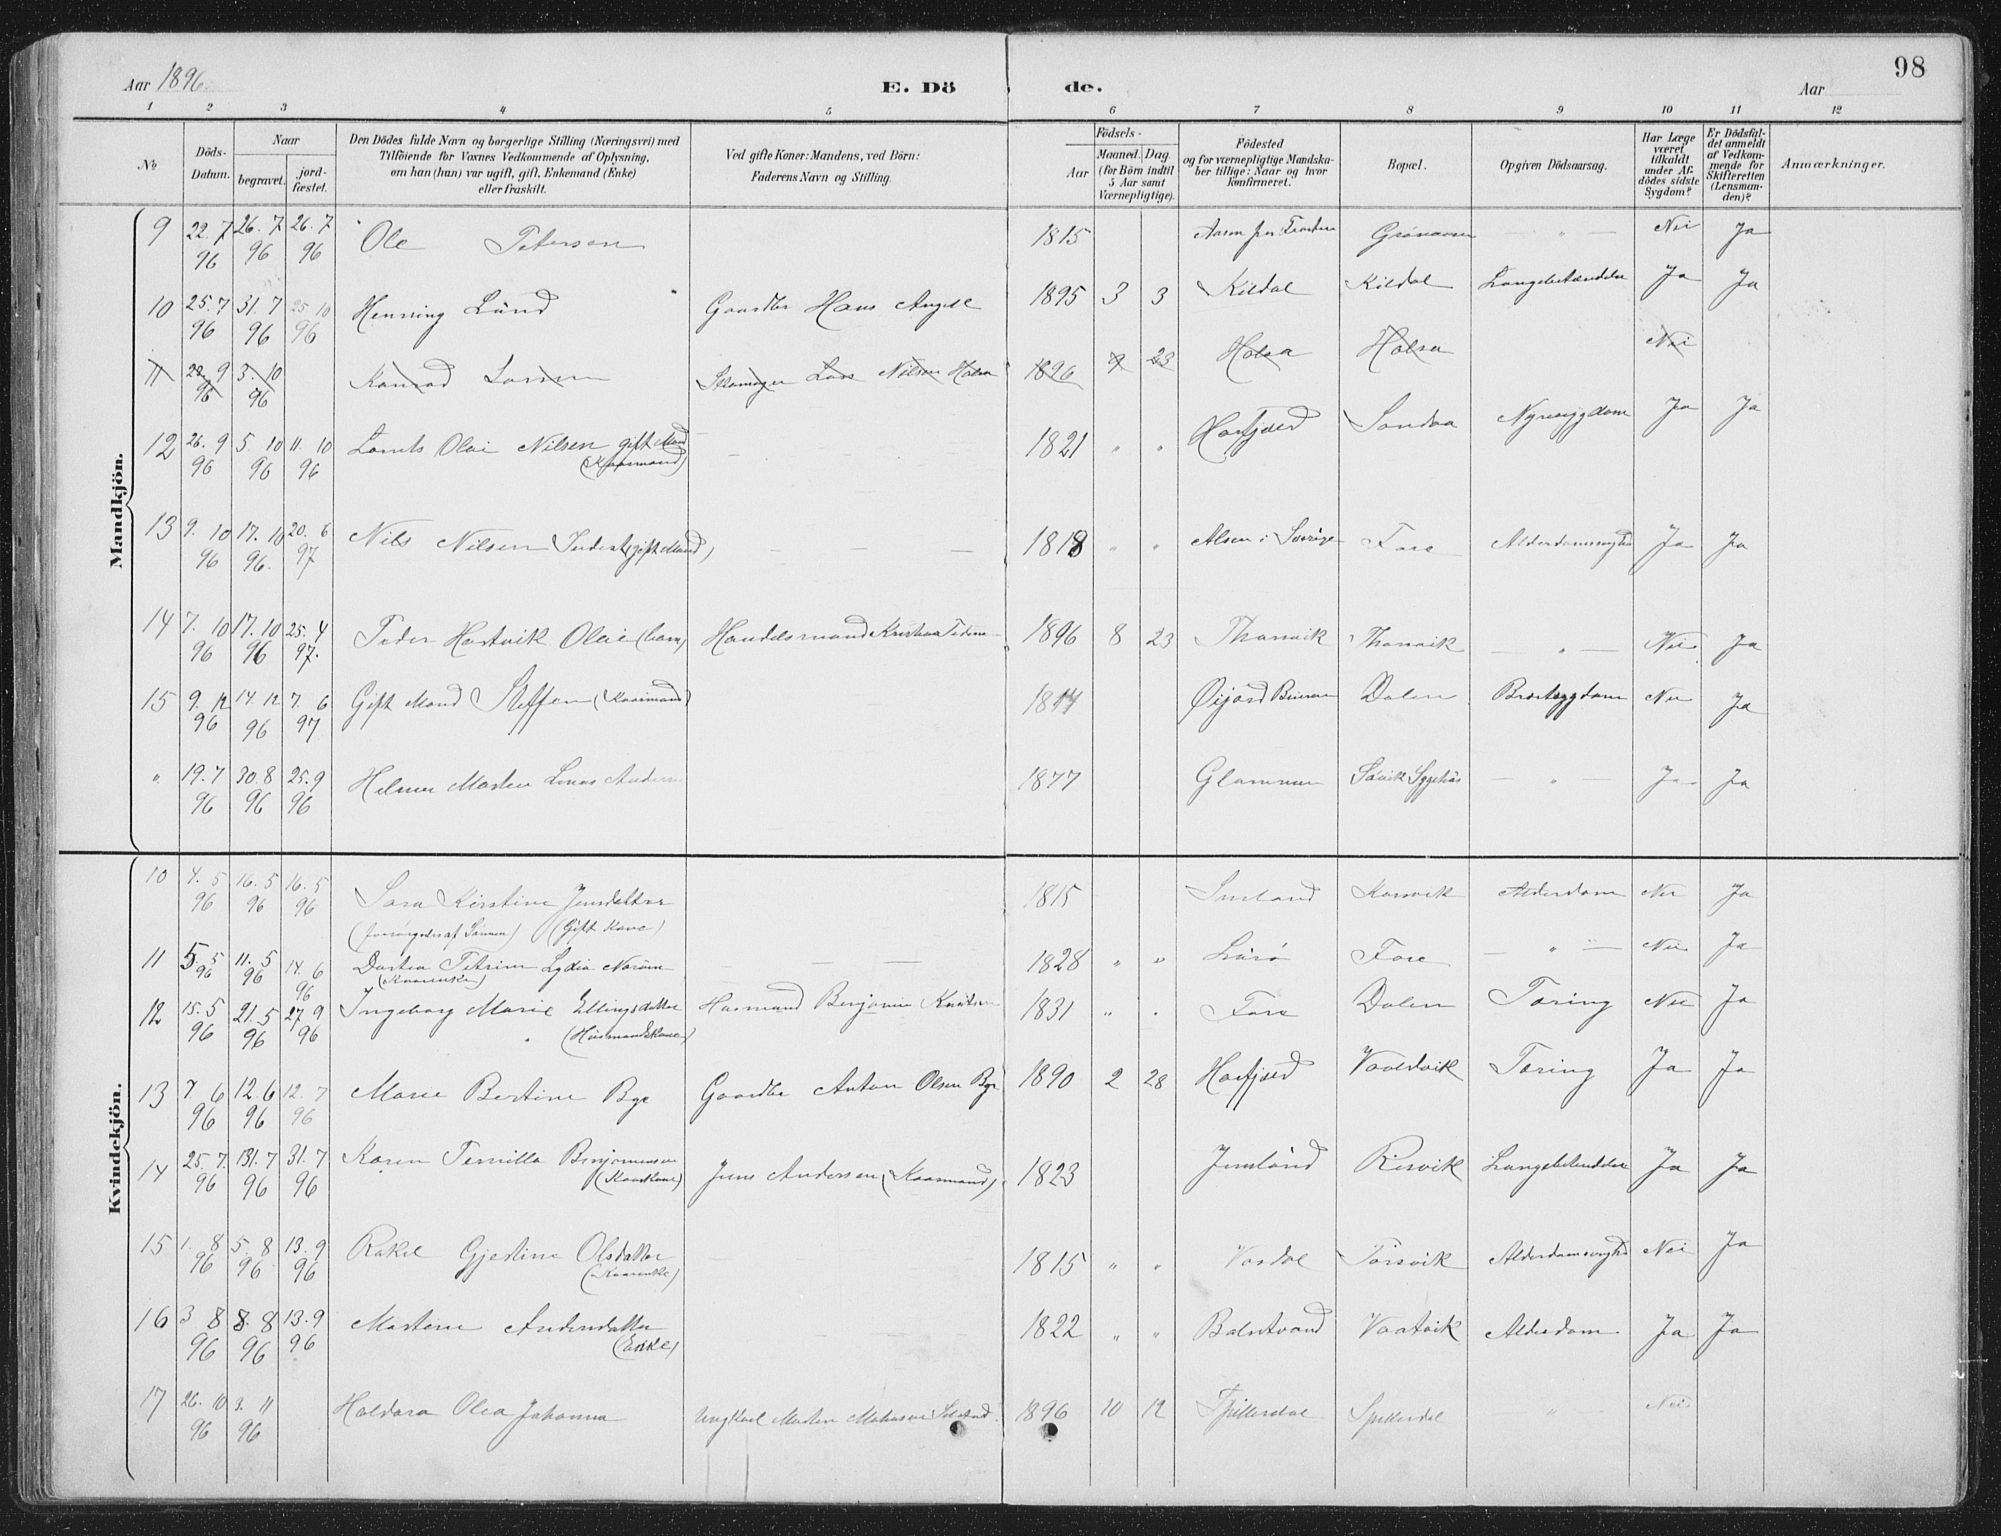 Aar 1896. E. Dö de. Aar 98
1 2 3 4 5 6 7 8 9 10 11 12
No
Döds-Datum.
Naar
begravet. jordfæstet.
Den Dödes fulde Navn og borgerlige Stilling (Næringsvei) med
Tilföiende for Voxnes Vedkommende af Oplysning,
om han (hun) var ugift, gift, Enkemand (Enke)
eller fraskilt.
Ved gifte Koner: Mandens, ved Börn:
Faderens Navn og Stilling.
Födsels-
Aar
Maaned. Dag
(for Börn indtil
5 Aar samt
Værnepligtige).
Födested
og for værnepligtige Mandska-
ber tillige: Naar og hvor
konfirmeret.
Bopæl.
Opgiven Dödsaarsag.
Har Læge
været
tilkaldt
under Af-
dödes sidste
Sygdom?
Er Dödsfal-
det anmeldt
af Vedkom-
mende for
Skifteretten
(Lensman-
den)?
Anmærkninger.
Mandkjön.
9 22.7 96 26.7 96 26.7 96 Ole Petersen 1815 — " — Nei Ja
10 25.7 96 31.7 96 25 10 96 Henning Lund Gaardbr Hans Angel 1895 3 3 Kildal Kildal Lungebetændelse Ja Ja
11 28 9 96 3. 10 96 Konrad Larsen Skomager Lars Nilsen Halsa 1896 9 23 Halsa Halsa Nei
12 26. 9 96 5. 10 96 11. 10 96 Lorents Olai Nilsen gift Mand
(Kaarmand) — 1821 " " Havfjord Sandaa Nyresygdom Ja Ja
13 9. 10 96 17. 10 96. 20. 6 97 Nils Nilsen Inderst (gift Mand) — — — 1818 " " Alsen i Sverige Fore Alderdomssvaghed Ja Ja
14 7. 10 96 17. 10 96 25. 4 97. Peder Hartvik Olai (barn) Handelsmand Kristian 1896 8 23 Thorsvik Thorsvik — " — Nei Ja
15 9. 12 96 14. 12 96 7. 6 97 Gift Mand Steffen (Kaarmand) Dalen Brystsygdom Nei Ja
" 19. 7 96 30. 8 96 25. 9 96 Helmer Morten 1877 Glommen Sygehus — " — Ja Ja
Kvindekjön.
10 4. 5 96 16. 5 96 16. 5 96 Sara Kirstine Jensdatter
(forsörgedes af Sönnen) (Gift Kone) 1815 Alderdom Nei Ja
11 5. 5 96 11. 5 96 14. 6 96 Dortea Petrine Lydia
(Kaarenke) — — — 1828 " " Lurö Fore — " — Nei Ja
12 15. 5 96 21. 5 96 27. 9 96 Ingeborg Marie Ellingsdatter
(Husmandskone) Husmand Benjamin Knutsen 1831 " " Fore Dalen Tæring Nei Ja
13 7. 6 96 12. 6 96 12. 7 96 Marie Bertine Bge Gaardbr Anton Olsen Bge 1890 2 28 Havfjord Vaaldvik Tæring Ja Ja
14 25. 7. 96 31. 7 96 31. 7 96 Karen Pernilla Benjaminsen
(Kaarkone) Jens Andersen (Kaarmand) 1823 Risvik Lungebetændelse Ja Ja
15 1. 8 96 5. 8 96 13. 9 96 Rakel Gjertine Olsdatter
(Kaarenke) — 1815 " " Vasdal Torsvik Alderdomssvaghed Nei Ja
16 3 8 96 8. 8 96 13. 9 96 Martine Andersdatter
(Enke) 1822 " " Vaatvik Alderdom Ja Ja
17 26. 10 96 3. 11 96 Haldora Olea Johanna Ungkarl Morten 1896 10 12 Spilderdal Spilderdal " — Nei